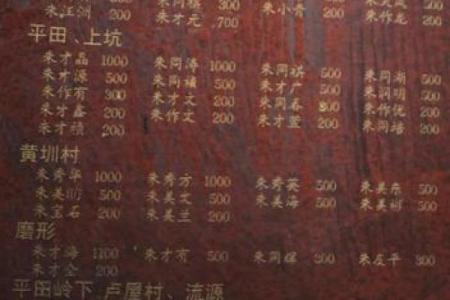 朱江洲 200 朱才元 700 朱小青 200 朱作龙 200
平田、上坑
朱才晶 1000 朱同涛 1000 朱同祺 500 朱同湖 500
朱才源 500 朱同禧 500 朱才广 500 朱润明 500
朱作有 300 朱才文 200 朱同春 300 朱作优 200
朱才鑫 200 朱作文 200 朱才萱 200 朱同培 200
朱才稹 200
黄圳村
朱秀华 1000 朱秀方 1000 朱秀英 500 朱美东 500
朱美衡 500 朱美文 500 朱美海 500 朱美彬 500
朱宝石 200 朱美兰 200
磨形
朱才海 1100 朱才有 500 朱同辉 300 朱左平 300
朱才全 200
平田岭下、卢屋村、流源